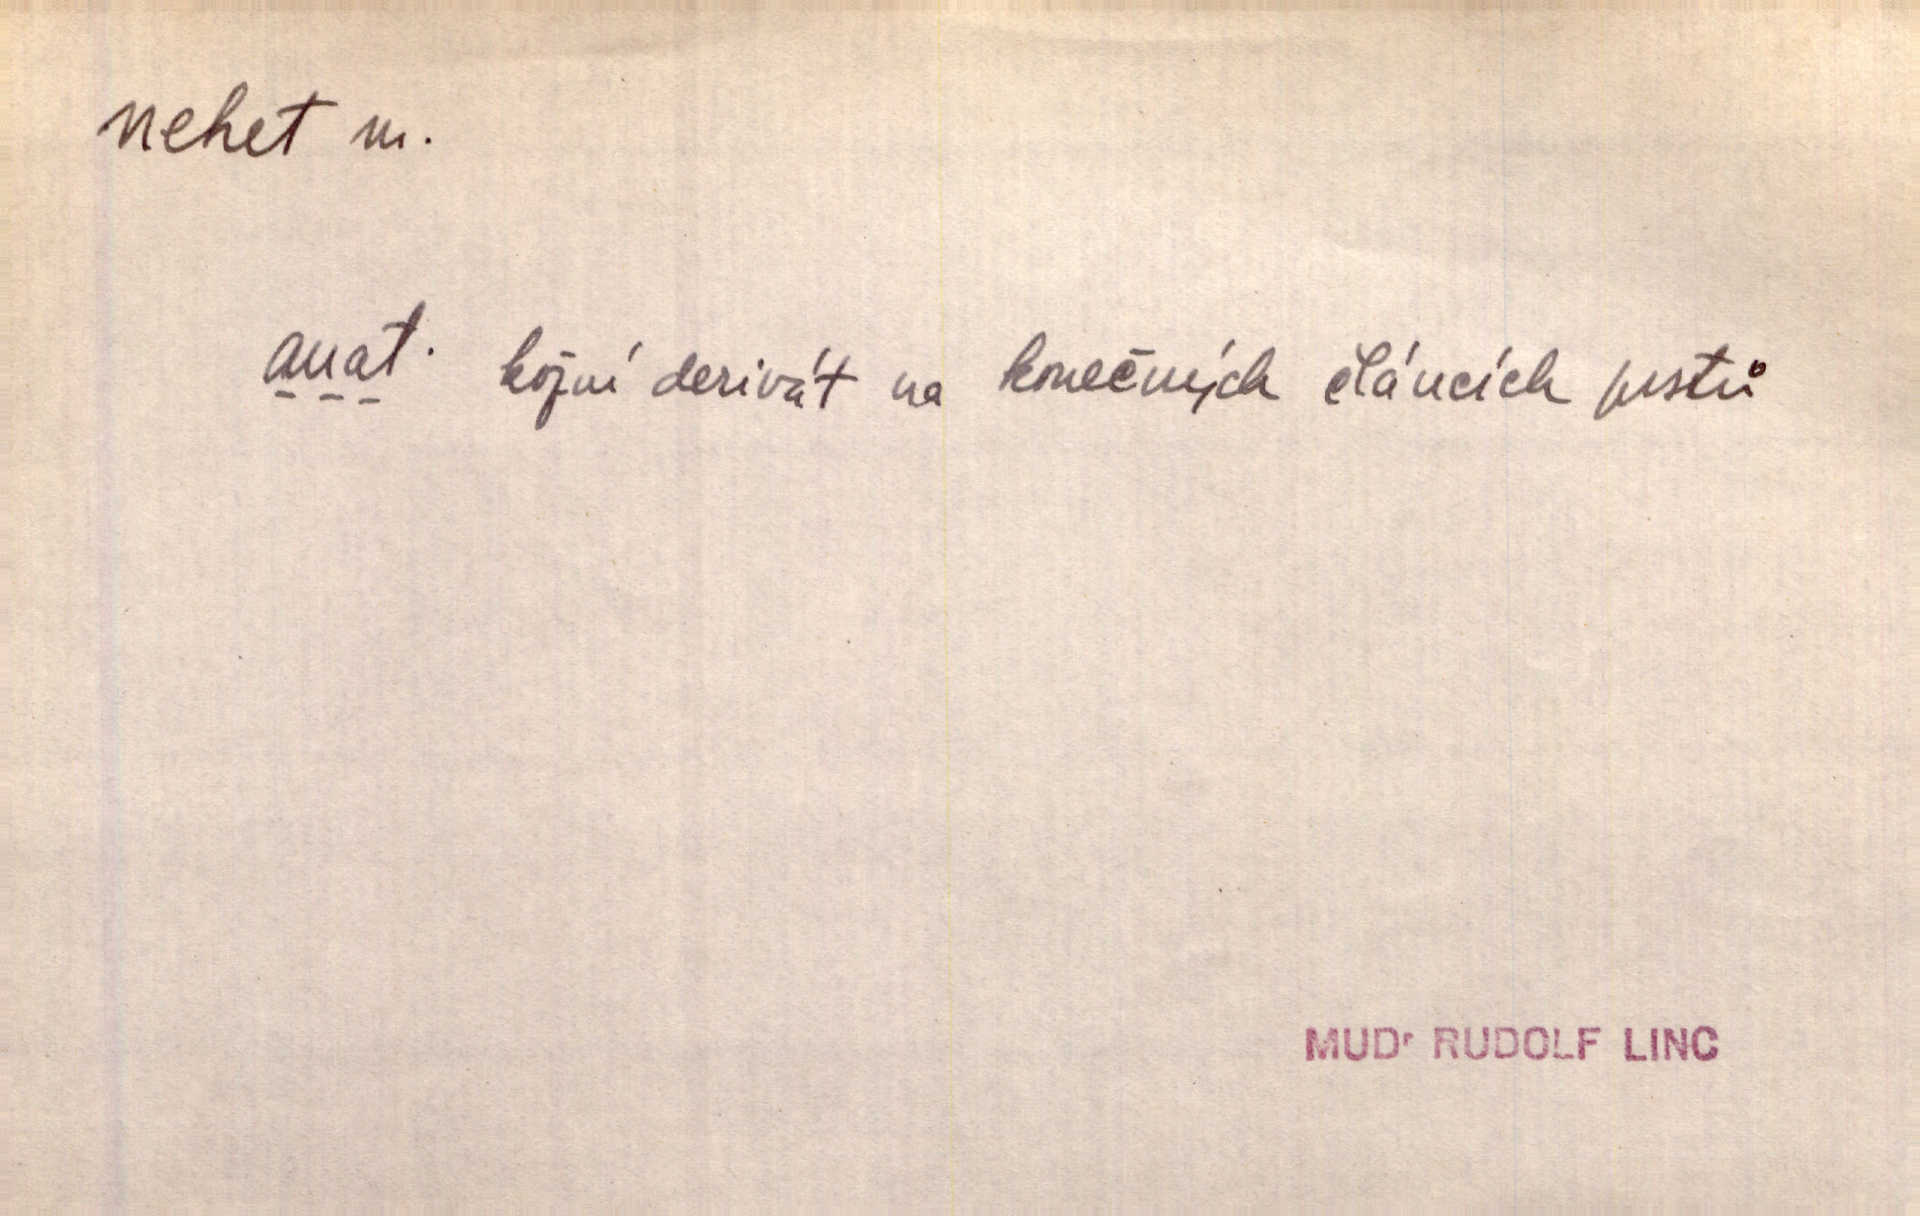 nehet m.
anat. kožní derivát na konečných článcích prstů
MUDr RUDOLF LINC